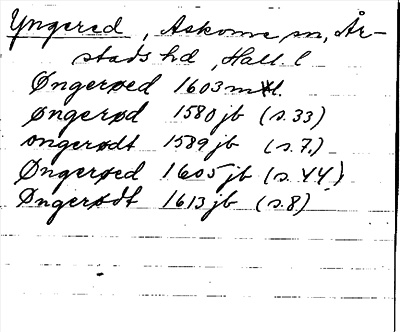 Yngered, Askome sn, År-
stads hd, Hall. l
Øngerøed 1603 mtl.
øngerød 1580 jb (s. 33)
ongerødt 1589 jb (s. 7.)
Øngerøed 1605 jb (s. 44)
Øngerødt 1613 jb (s. 8)